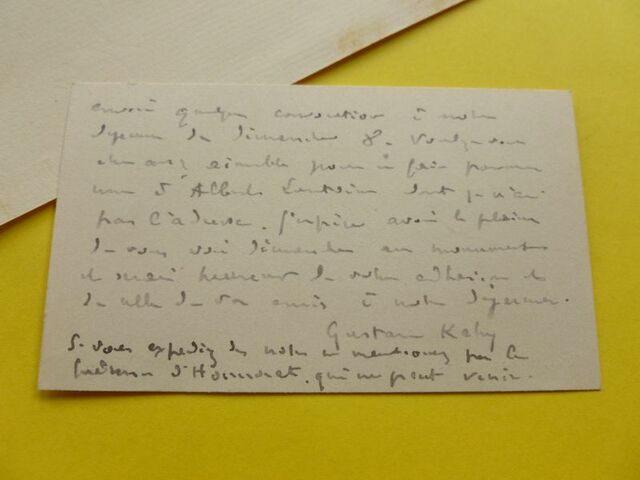 envoi quelques convocations à notre
déjeuner du dimanche 8. Voulez-vous
être assez aimable pour en faire parvenir
une à Albert Lantoine dont je n'ai
pas l'adresse. J'espère avoir le plaisir
de vous voir dimanche au monument
et serai heureux de votre adhésion et
de celle de vos amis à notre déjeuner.
Gustave Kahn
Si vous expédiez des notes ne mentionnez pas la
présence d'Honnorat, qui ne peut venir.